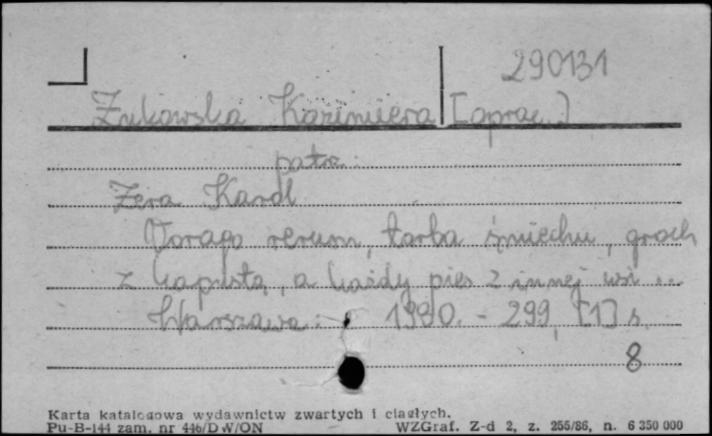 290131
Żukowska Kazimiera [oprac.]
patrz:
Żera Karol
Vorago rerum, torba śmiechu, groch
z kapustą, a każdy pies z innej wsi ...
Warszawa: 1980. - 299, [1] s.
8
Karta katalogowa wydawnictw zwartych i ciągłych.
Pu-B-144 zam. nr 446/DW/ON WZGraf. Z-d 2, z. 255/86, n. 6 350 000